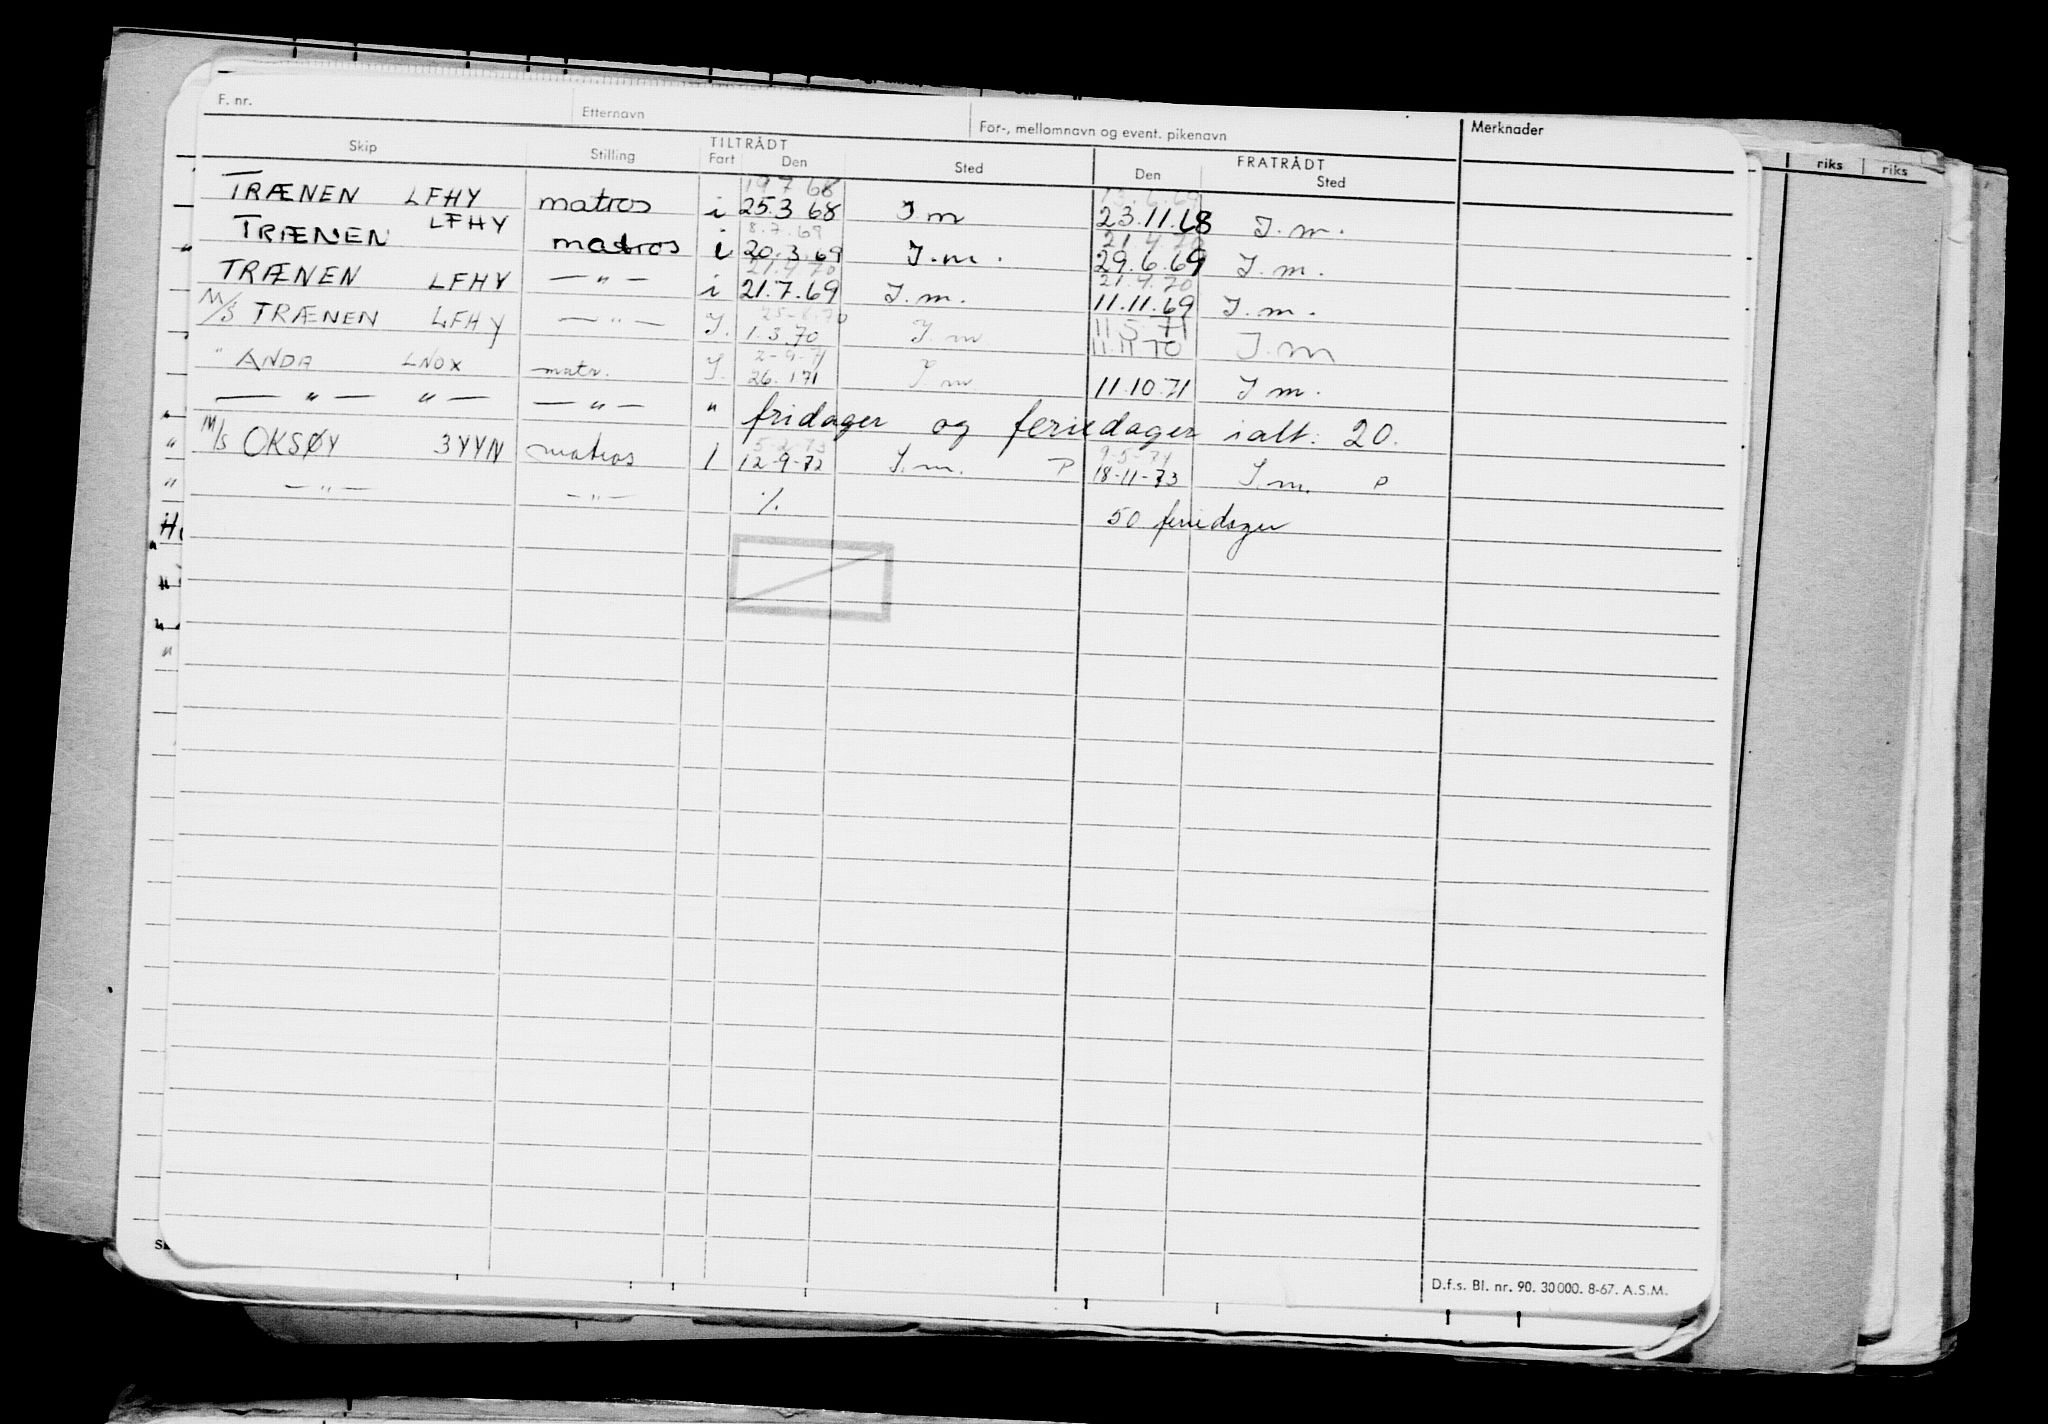 F. nr. Etternavn For-, mellomnavn og event. pikenavn Merknader
Skip Stilling TILTRÅDT Fart Den Sted FRATRÅDT Den Sted
riks riks
19 7 68 13.6.69
TRÆNEN LFHY matros i 25.3 68 I m 23.11.68 I. m.
8.7.69 21.4.70
TRÆNEN LFHY matros i 20.3.69 I.m. 29.6.69 I. m.
21.4 70 21.4.70
TRÆNEN LFHY — " — i 21.7.69 I. m. 11.11.69 I. m.
25-6.70 11 5 71
M/S TRÆNEN LFHY — " — I. 1.3.70 I. m 11.11 70 I. m
2-9-71
" ANDA LNOX matr. I. 26.1 71 I. m 11.10.71 I m.
— " — " — — " — " fridager og feriedager ialt: 20.
5-2-73 9-5-74
M/S OKSØY 3YYN matros I 12-9-72 I. m. P 18-11-73 I. m. P
— " — — " — ./. 50 feriedager
D.f.s. Bl. nr. 90. 30 000. 8-67. A.S.M.